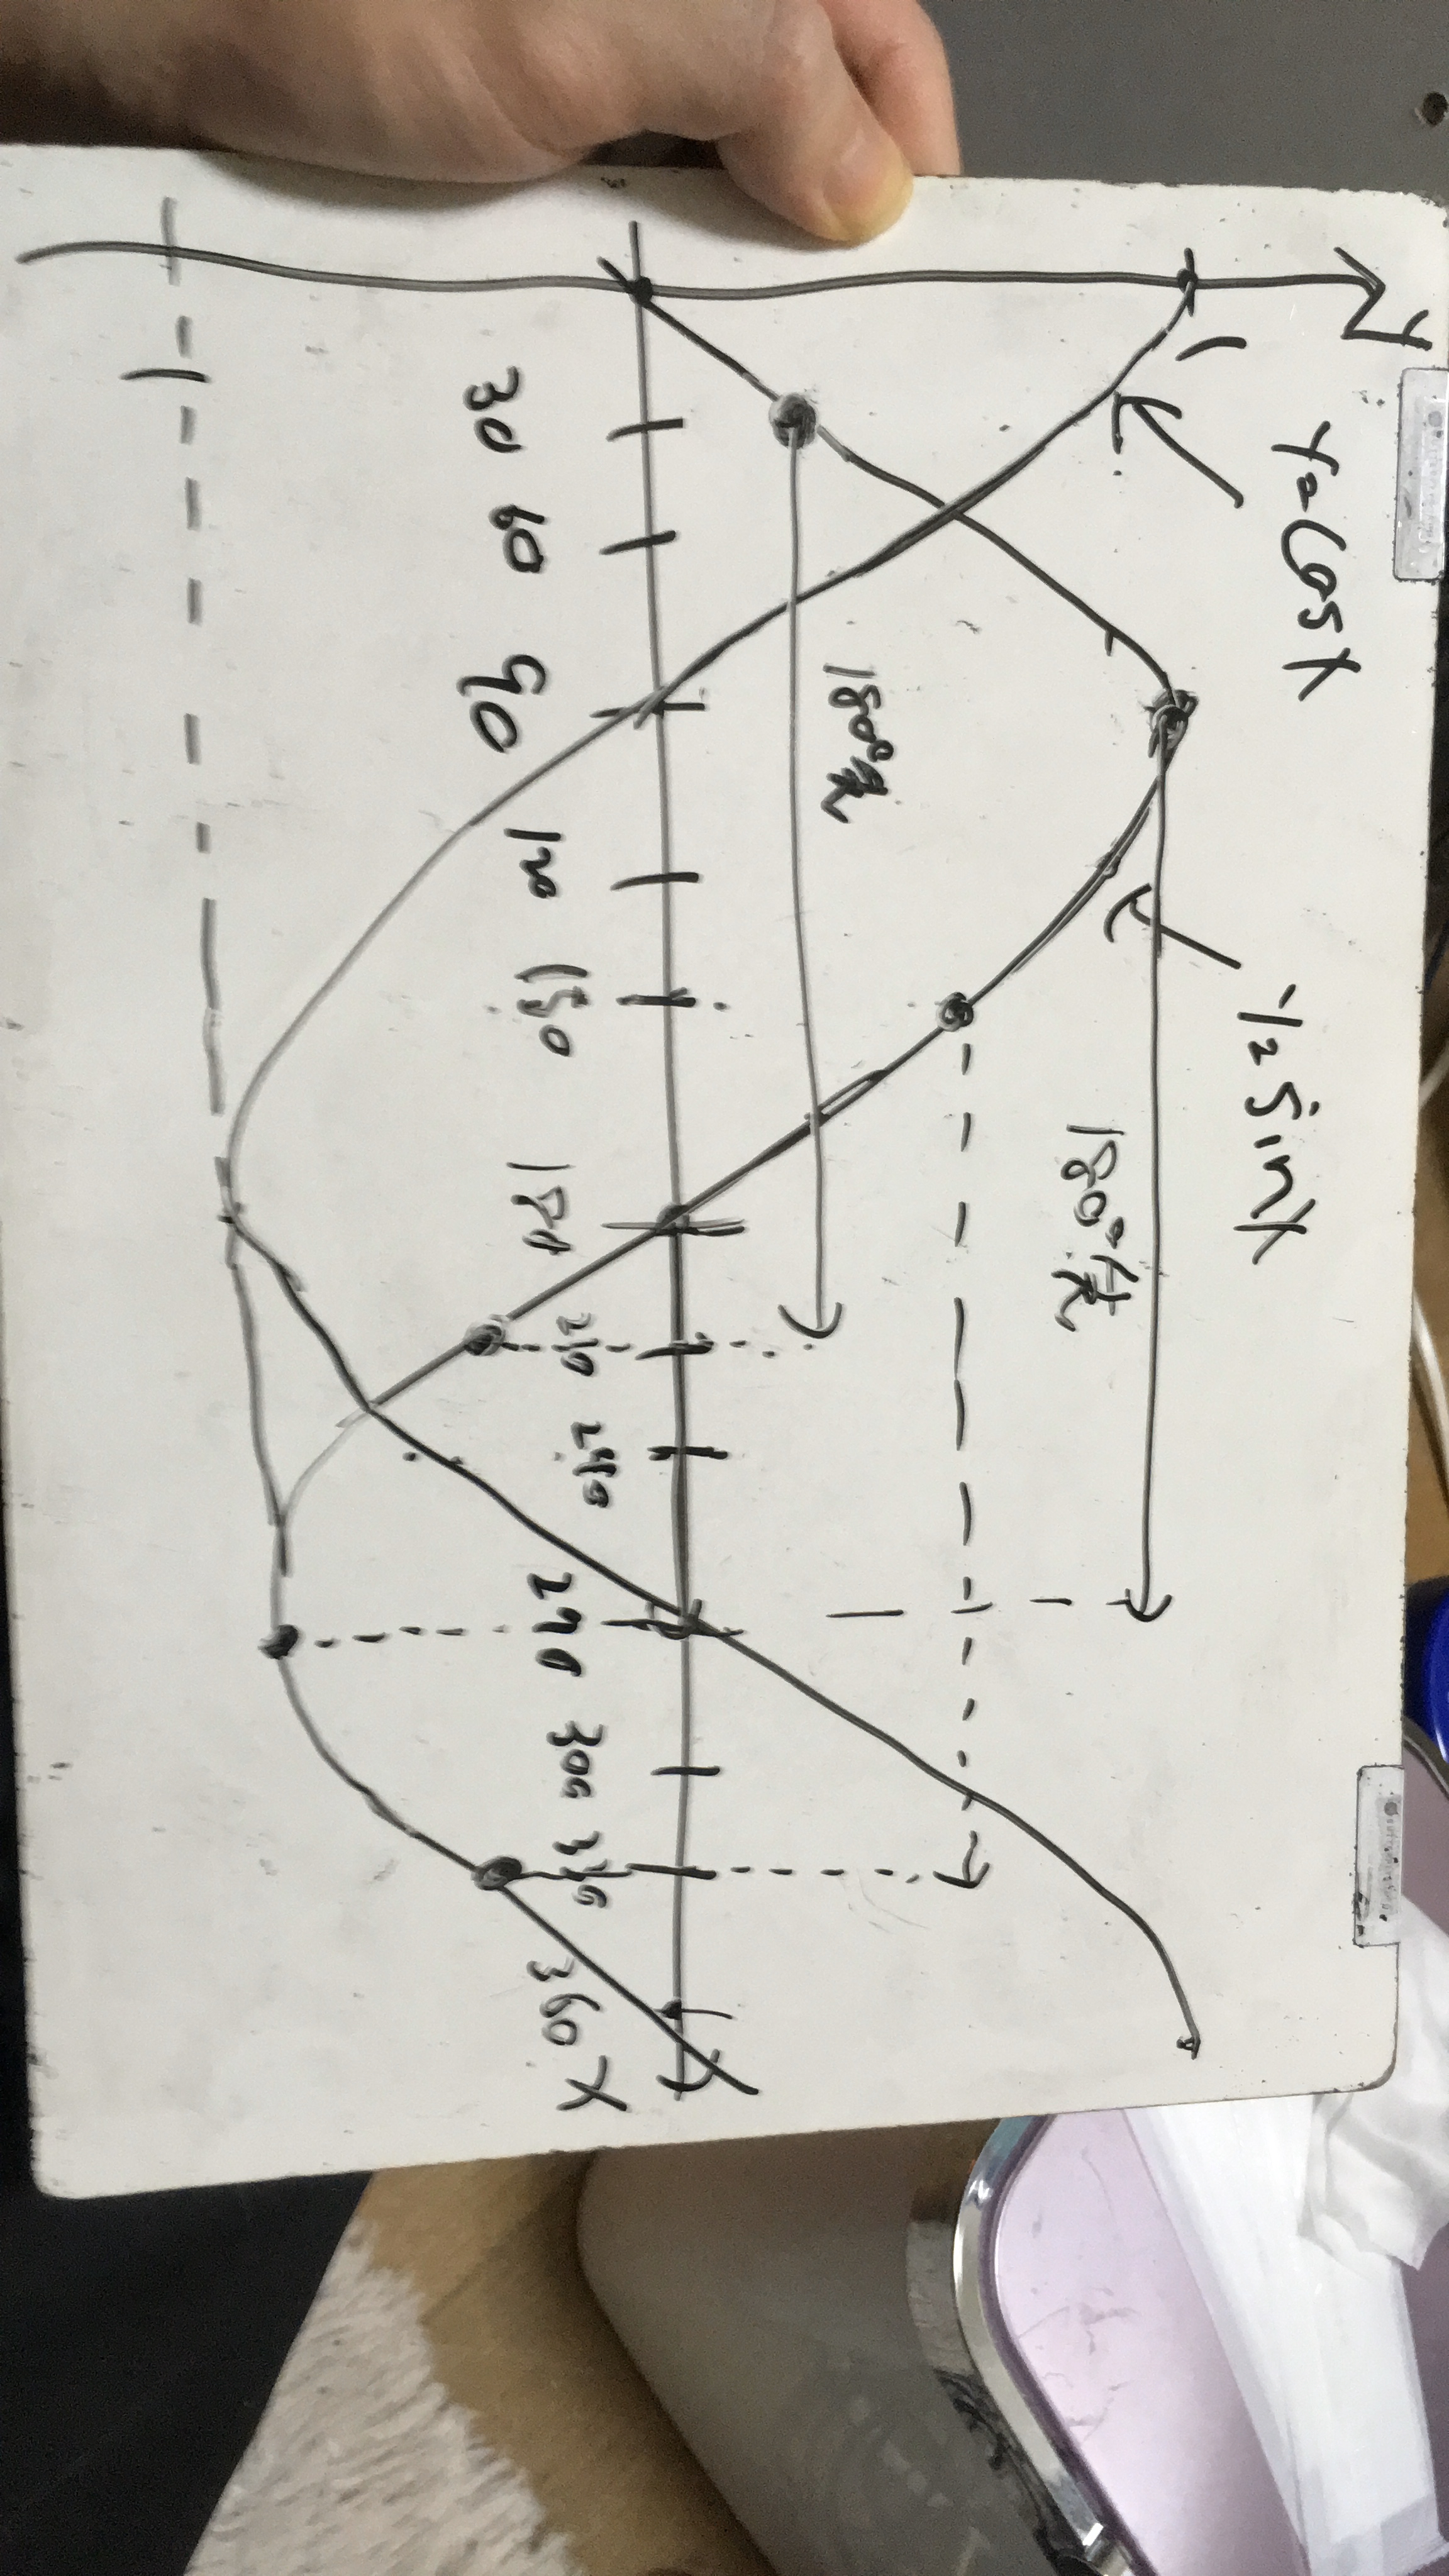 Y
1
Y=Cosx
Y=sinx
180°先
180°先
30 60 90 120 150 180 210 240 270 300 330 360 X
-1